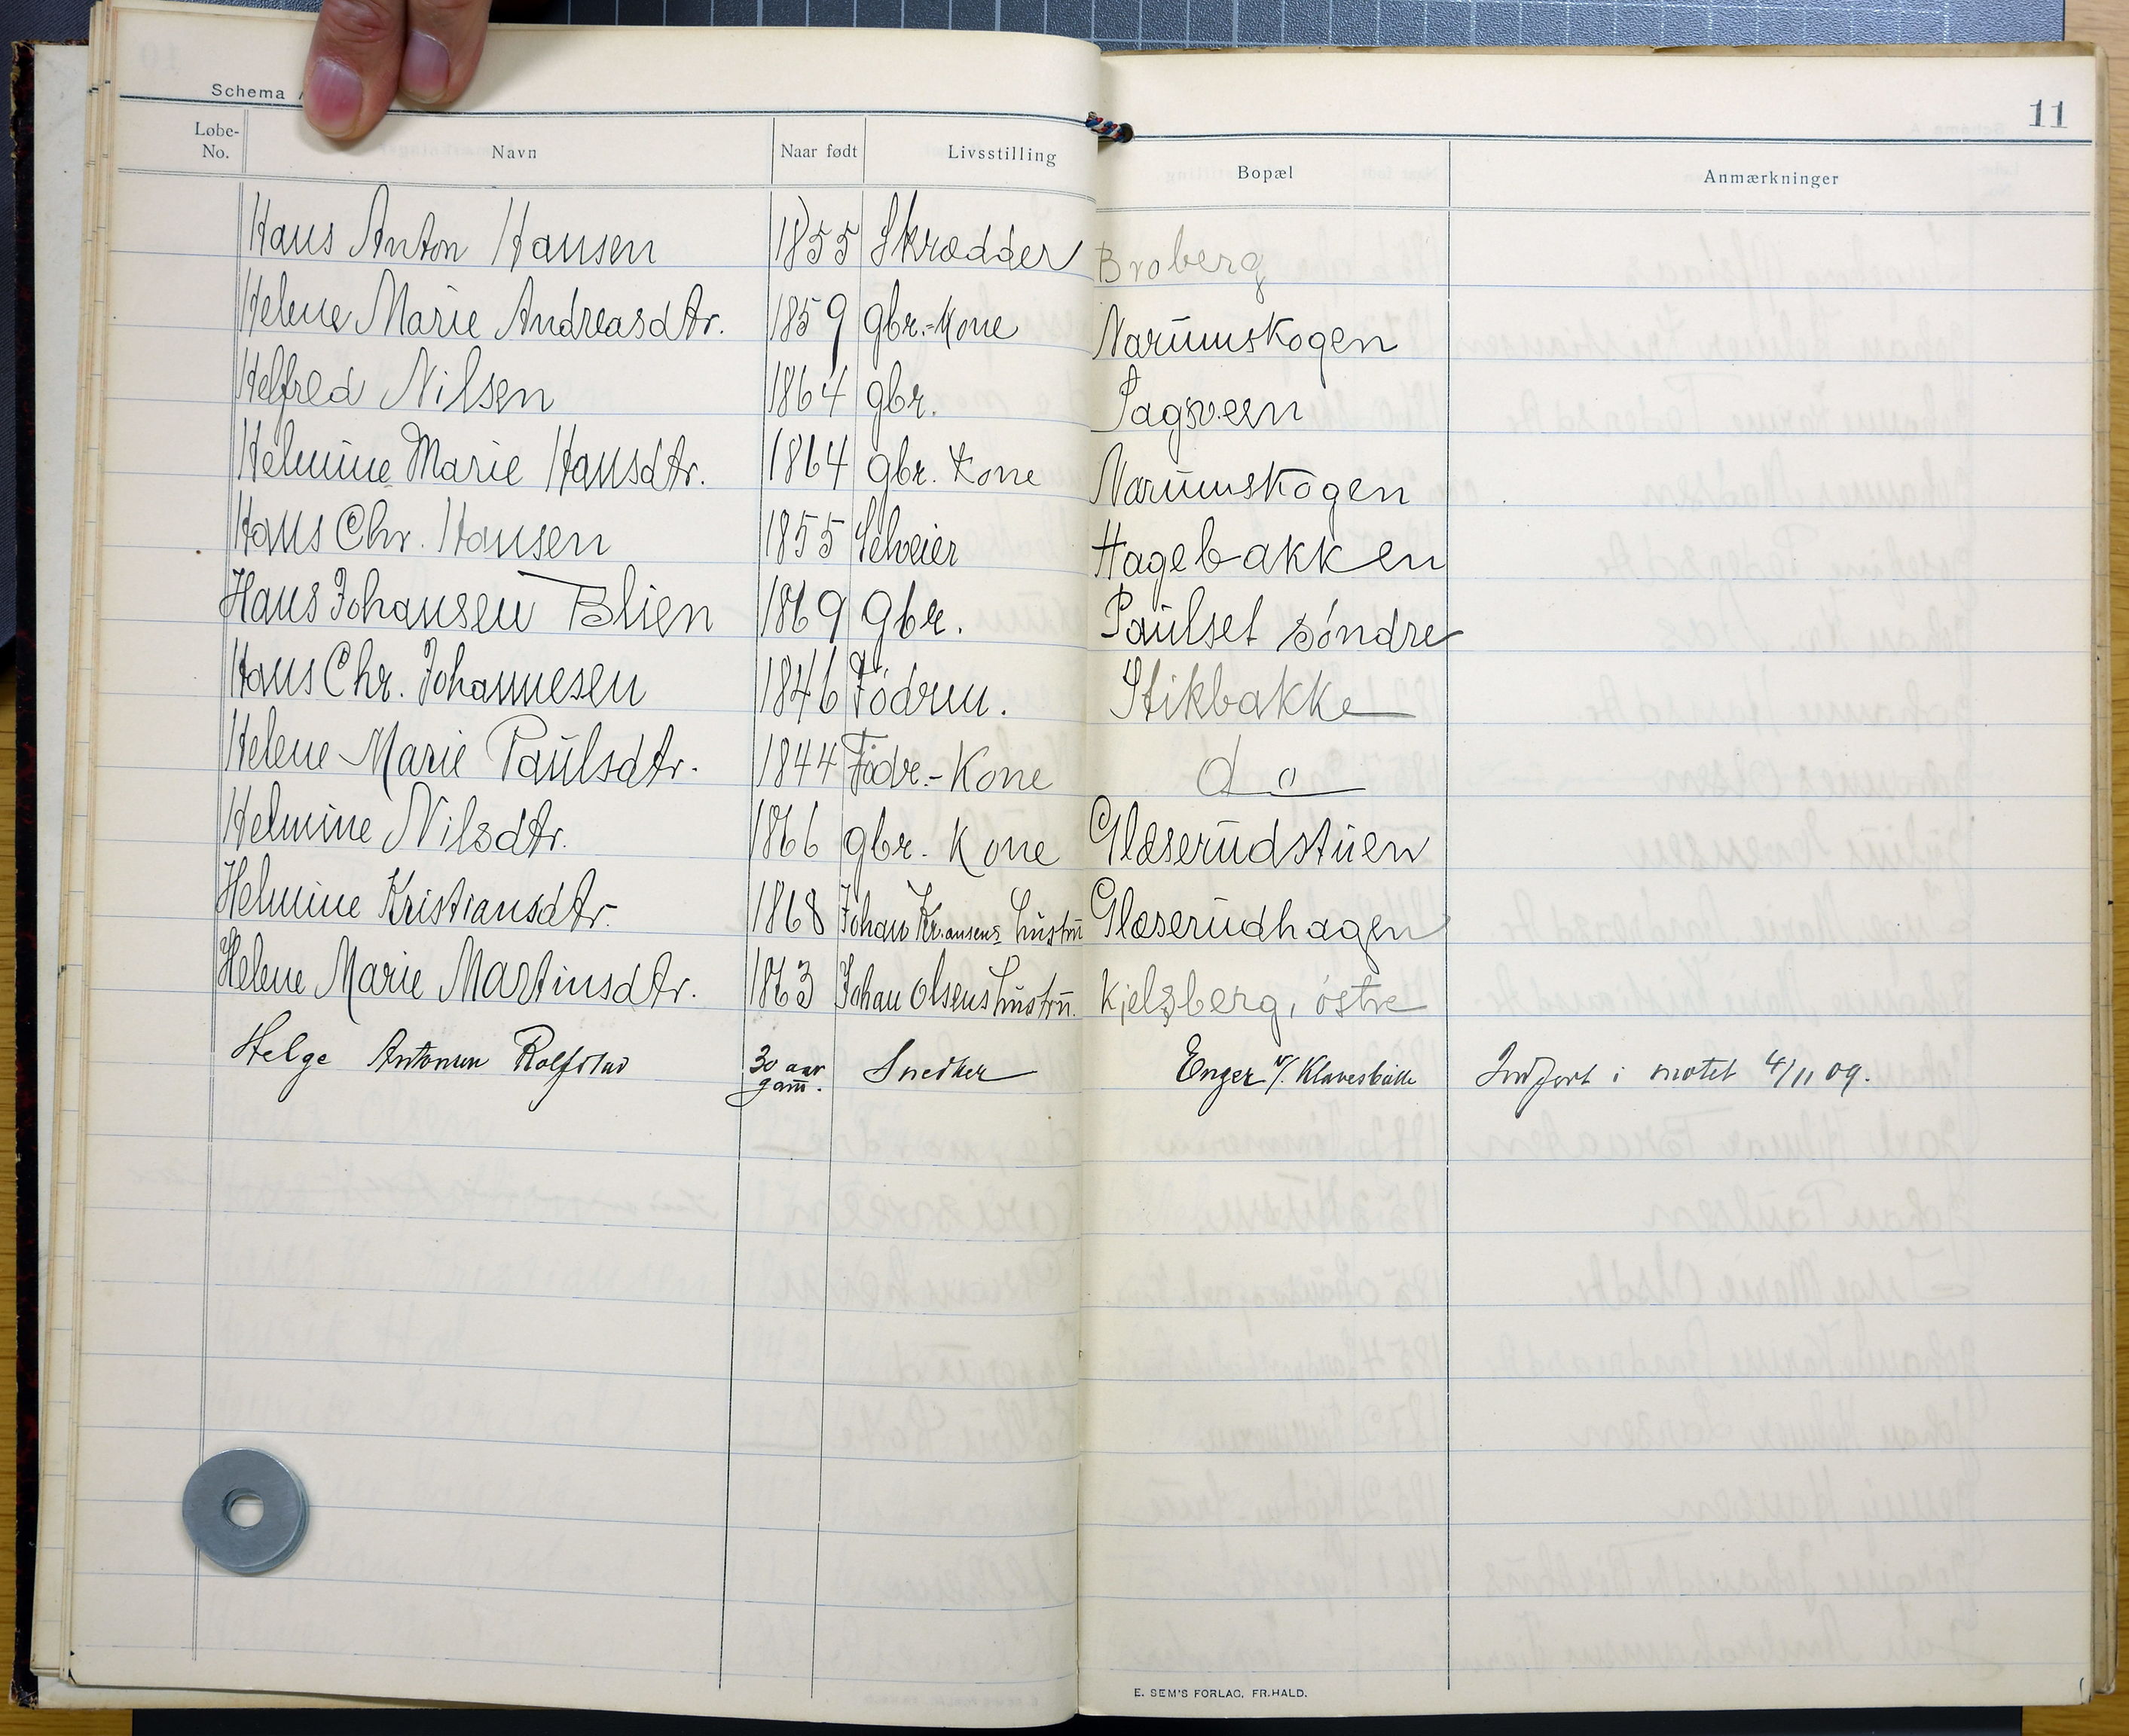 Schema
11
Løbe-No. Navn Naar født Livsstilling Bopæl Anmærkninger
Hans Anton Hansen 1855 Skrædder Broberg
Helene Marie Andreasdtr. 1859 gbr.-Kone Narūmskogen
Helfred Nilsen 1864 gbr. Sagvern
Helmine Marie Hansdtr. 1864 gbr. Kone Narūmskogen
Hans Chr. Hansen 1855 Selveier Hagebakken
Hans Johansen Blien 1869 Gbr. Paūlset söndre
Hans Chr. Johannesen 1846 Födrm. Stikbakke
Helene Marie Paūlsdtr. 1844 Födr.-Kone do
Helmine Nilsdtr. 1866 gbr. Kone Glæserūdstūen
Helmine Kristiansdtr. 1868 Johan Kr.ansens hūstrū Glæserūdhagen
Helene Marie Martinsdtr. 1863 Johan Olsens hūstrū. Kjelsberg, östre
Helge Antonsen Rolfstad 30 aar gam̄. Snedker Enger v/ Indført i møtet 4/11 09.
E. SEM'S FORLAG, FR.HALD.